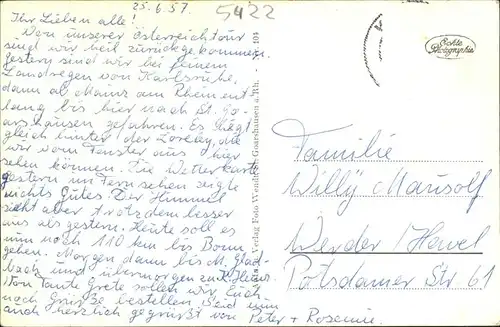 25.6.57.
5422
Ihr Lieben alle!
Von unserer Österreichtour
sind wir heil zurückgekommen.
Gestern sind wir bei feinem
Landregen von Karlsruhe,
dann ab Mainz am Rhein ent
lang bis hier nach St. Go-
arshausen gefahren. Es liegt
gleich hinter der Loreley, die
wir vom Fenster aus
sehen können. Die Wetterkarte
gestern im Fernsehen zeigte
nichts Gutes. Der Himmel
sieht aber trotzdem besser
aus als gestern. Heute soll es
nun noch 110 km bis Bonn
gehen. Morgen dann bis M. Glad-
bach und übermorgen zu
Von Tante Grete sollen wir Euch
noch Grüße bestellen. Seid nun
auch herzlich gegrüßt von Peter + Rosemie
Verlag Foto Goarshausen a. Rh. 104
Echte
Photographie
Familie
Willy Mausolf
Werder / Havel
Potsdamer Str 61